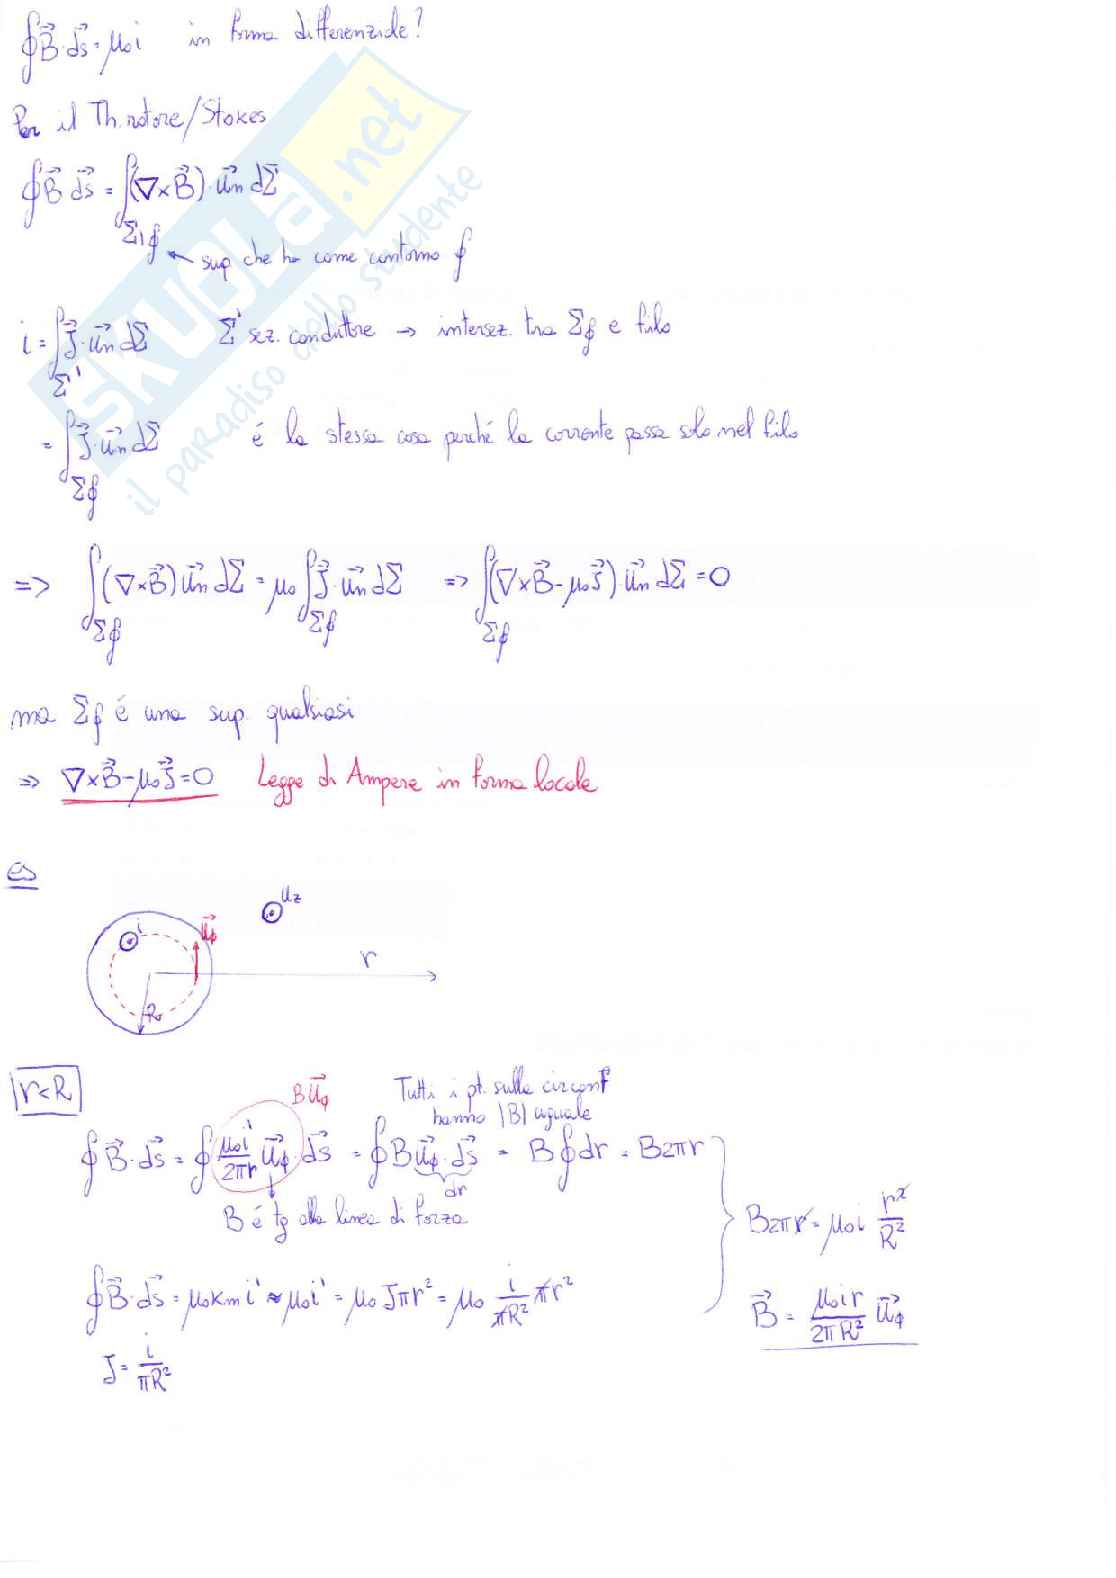 ∮B⃗·ds⃗ = μ₀i in forma differenziale?
Per il Th. rotore/Stokes
∮B⃗ ds⃗ = ∫(∇×B⃗)·u⃗n dΣ
Σ∮
sup che ha come contorno ∮
i = ∫J⃗·u⃗n dΣ Σ' sez. conduttore → intersez. tra Σ∮ e filo
Σ'
= ∫J⃗·u⃗n dΣ é la stessa cosa perché la corrente passa solo nel filo
Σ∮
=> ∫(∇×B⃗)u⃗n dΣ = μ₀∫J⃗·u⃗n dΣ => ∫(∇×B⃗-μ₀J⃗)·u⃗n dΣ = 0
Σ∮ Σ∮ Σ∮
ma Σ∮ é una sup. qualsiasi
=> ∇×B⃗-μ₀J⃗=0 Legge di Ampere in forma locale
es
uz
i u⃗φ
r
R
r<R
Bu⃗φ Tutti i pt. sulla circonf
hanno |B| uguale
∮B⃗·ds⃗ = ∮ μ₀i'/2πr u⃗φ·ds⃗ = ∮Bu⃗φ·ds⃗ = B∮dr = B2πr
dr
B é tg alla linea di forza
B2πr = μ₀i r²/R²
∮B⃗·ds⃗ = μ₀κm i' ≈ μ₀i' = μ₀Jπr² = μ₀ i/πR² πr²
B⃗ = μ₀ir/2πR² u⃗φ
J = i/πR²
SKUOLA.net
il paradiso dello studente